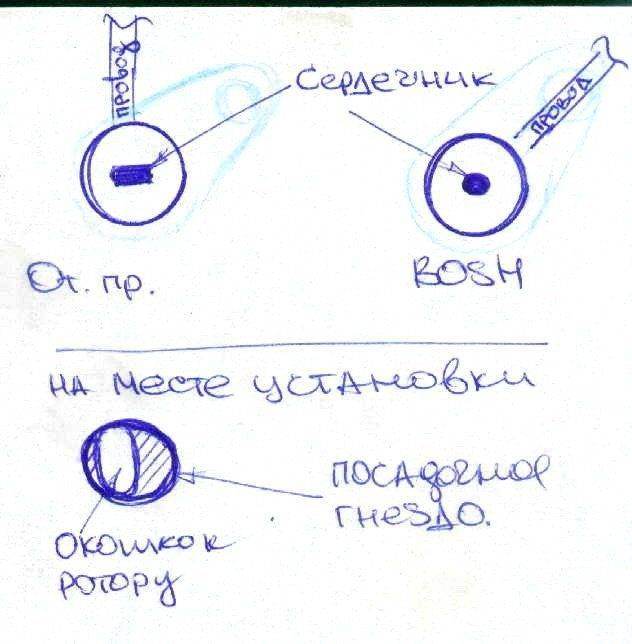 провод
Сердечник
провод
От. пр.
BOSH
на месте установки
посадочное
гнезDо.
окошко к
ротору